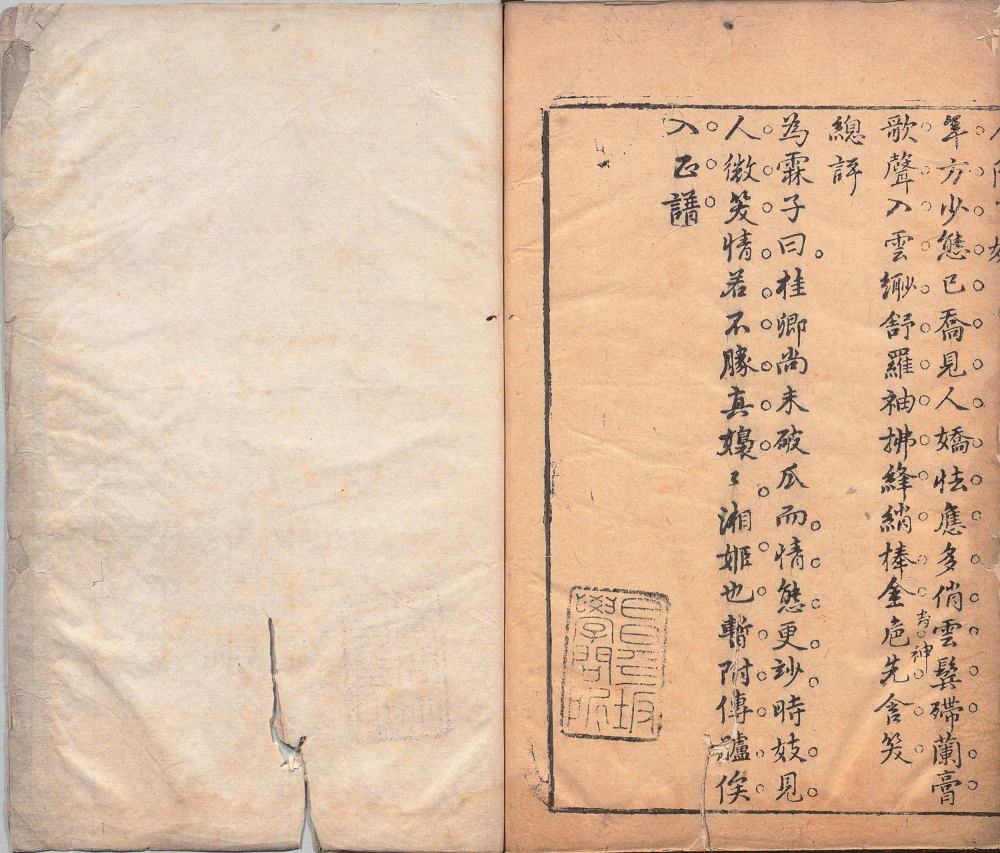 年方少態已喬見人嬌怯應多俏雲鬓殢蘭膏
歌聲入雲緲舒羅袖拂絳綃棒金卮先含笑
傳神
總評
為霖子曰桂卿尚未破瓜而情態更玅時妓見
人微笑情若不勝真嬝〻湘姬也暫附傳臚俟
入正譜
昌平坂
學問所